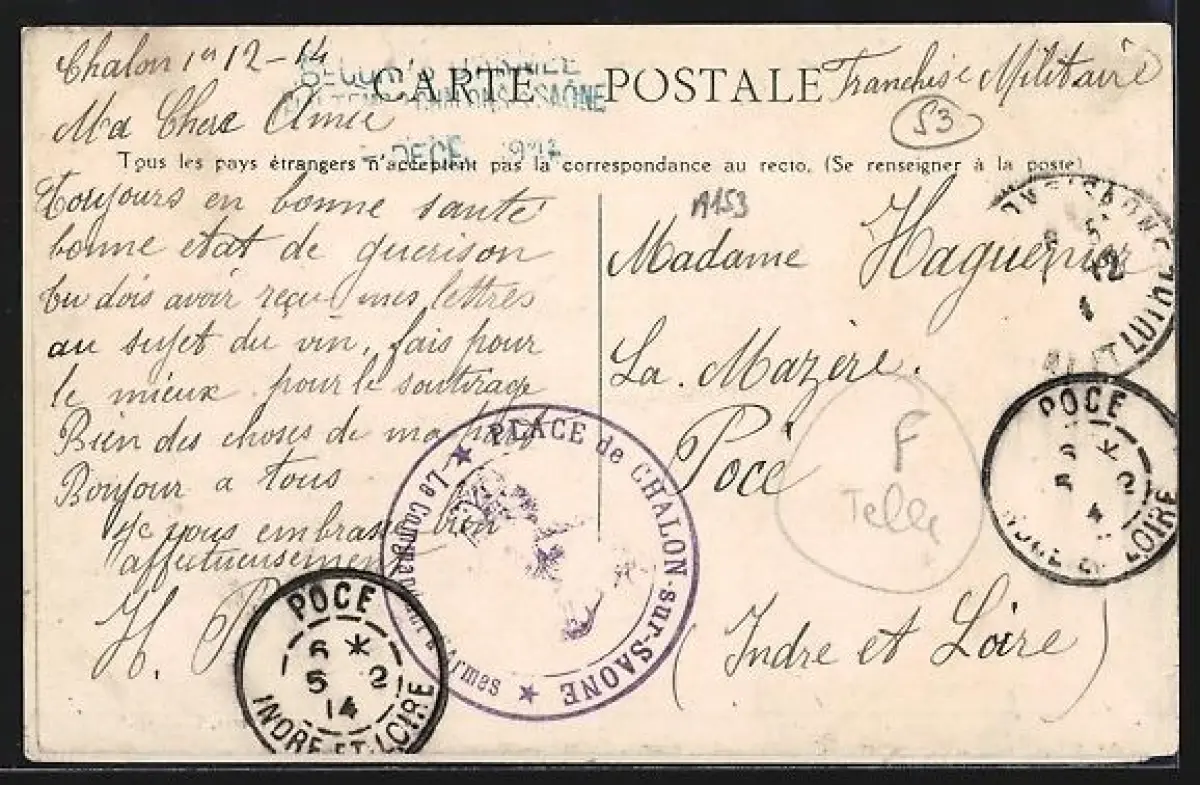 Chalon 1er 12-14
CARTE POSTALE
Franchise Militaire
53
Ma Chere Amie
DECE
Tous les pays étrangers n'acceptent pas la correspondance au recto. (Se renseigner à la poste)
Toujours en bonne santé
bonne etat de guerison
tu dois avoir reçu mes lettres
au sujet du vin, fais pour
le mieux pour le soutirage
Bien des choses de ma part
Bonjour a tous
Je vous embrasse bien
affectueusement
H. P
A153
Madame Haguenier
La Mazère.
Pocé
(Indre et Loire)
F
Telle
PLACE de CHALON-sur-SAONE
Le Commandant d'Armes
POCE
6 *
5 2
14
INDRE-ET-LOIRE
POCE
6 *
5 2
4
INDRE ET LOIRE
5
12